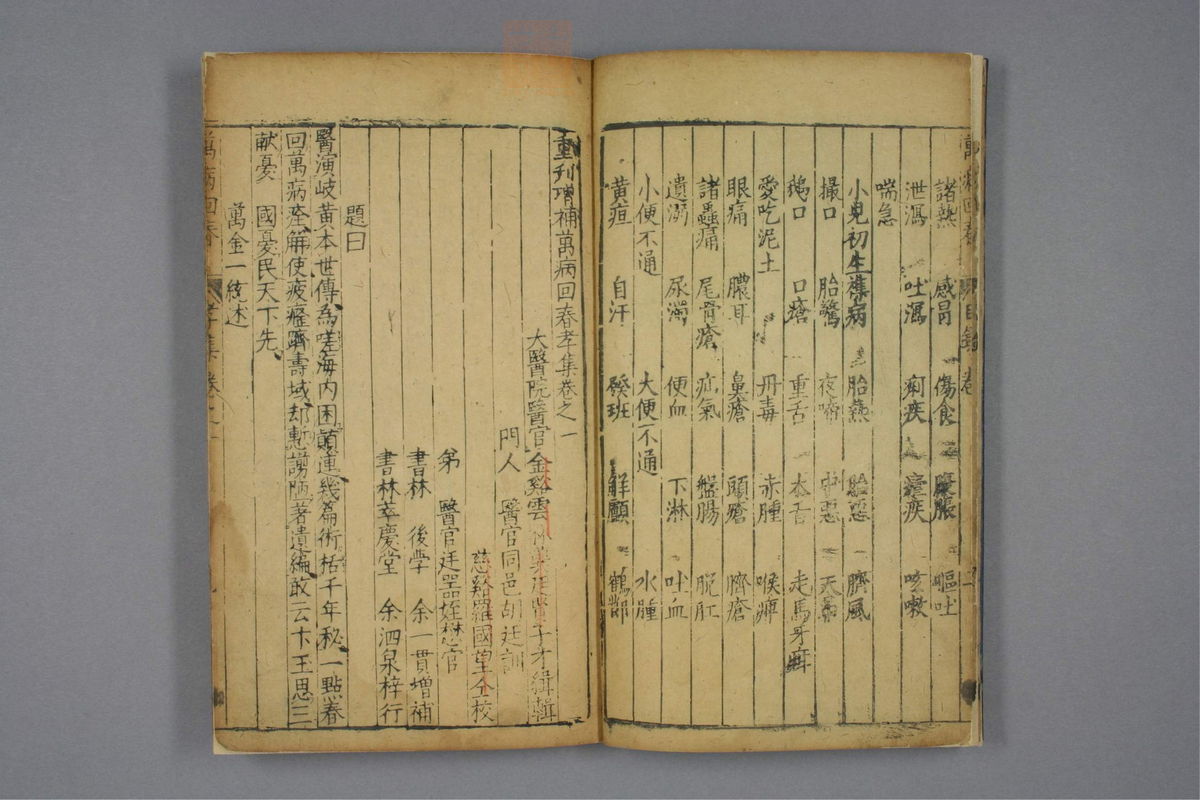 諸熱 感冒 傷食 腹脹 嘔吐
泄瀉 吐瀉 痢疾 瘧疾 咳嗽
喘急
小兒初生雜病 胎熱 臍風
撮口 胎驚 夜啼 中惡 天
鵝口 口瘡 重舌 木舌 走馬牙疳
愛吃泥土 丹毒 赤腫 喉痹
眼痛 膿耳 鼻瘡 頭瘡 臍瘡
諸蟲痛 尾骨瘡 疝氣 盤腸 脱肛
遺溺 尿濁 便血 下淋 吐血
小便不通 大便不通 水腫
黄疸 自汗 發班 解顱 鶴
重刋增補萬病回春孝集卷之一
大醫院醫官金谿雲林龔廷賢子才緝輯
門人 醫官同邑胡廷訓
慈谿羅國望仝校
弟 醫官廷器姪懋官
書林 後學 余一貫增補
書林萃慶堂 余泗泉梓行
題曰
醫演岐黄本世傳為嗟海内困顛連幾篇術枯千年秘一點春
回萬病痊解使疲癃躋壽域却慙謭陋著遺編敢云卞玉思三
献憂 國憂民天下先
萬金一統述